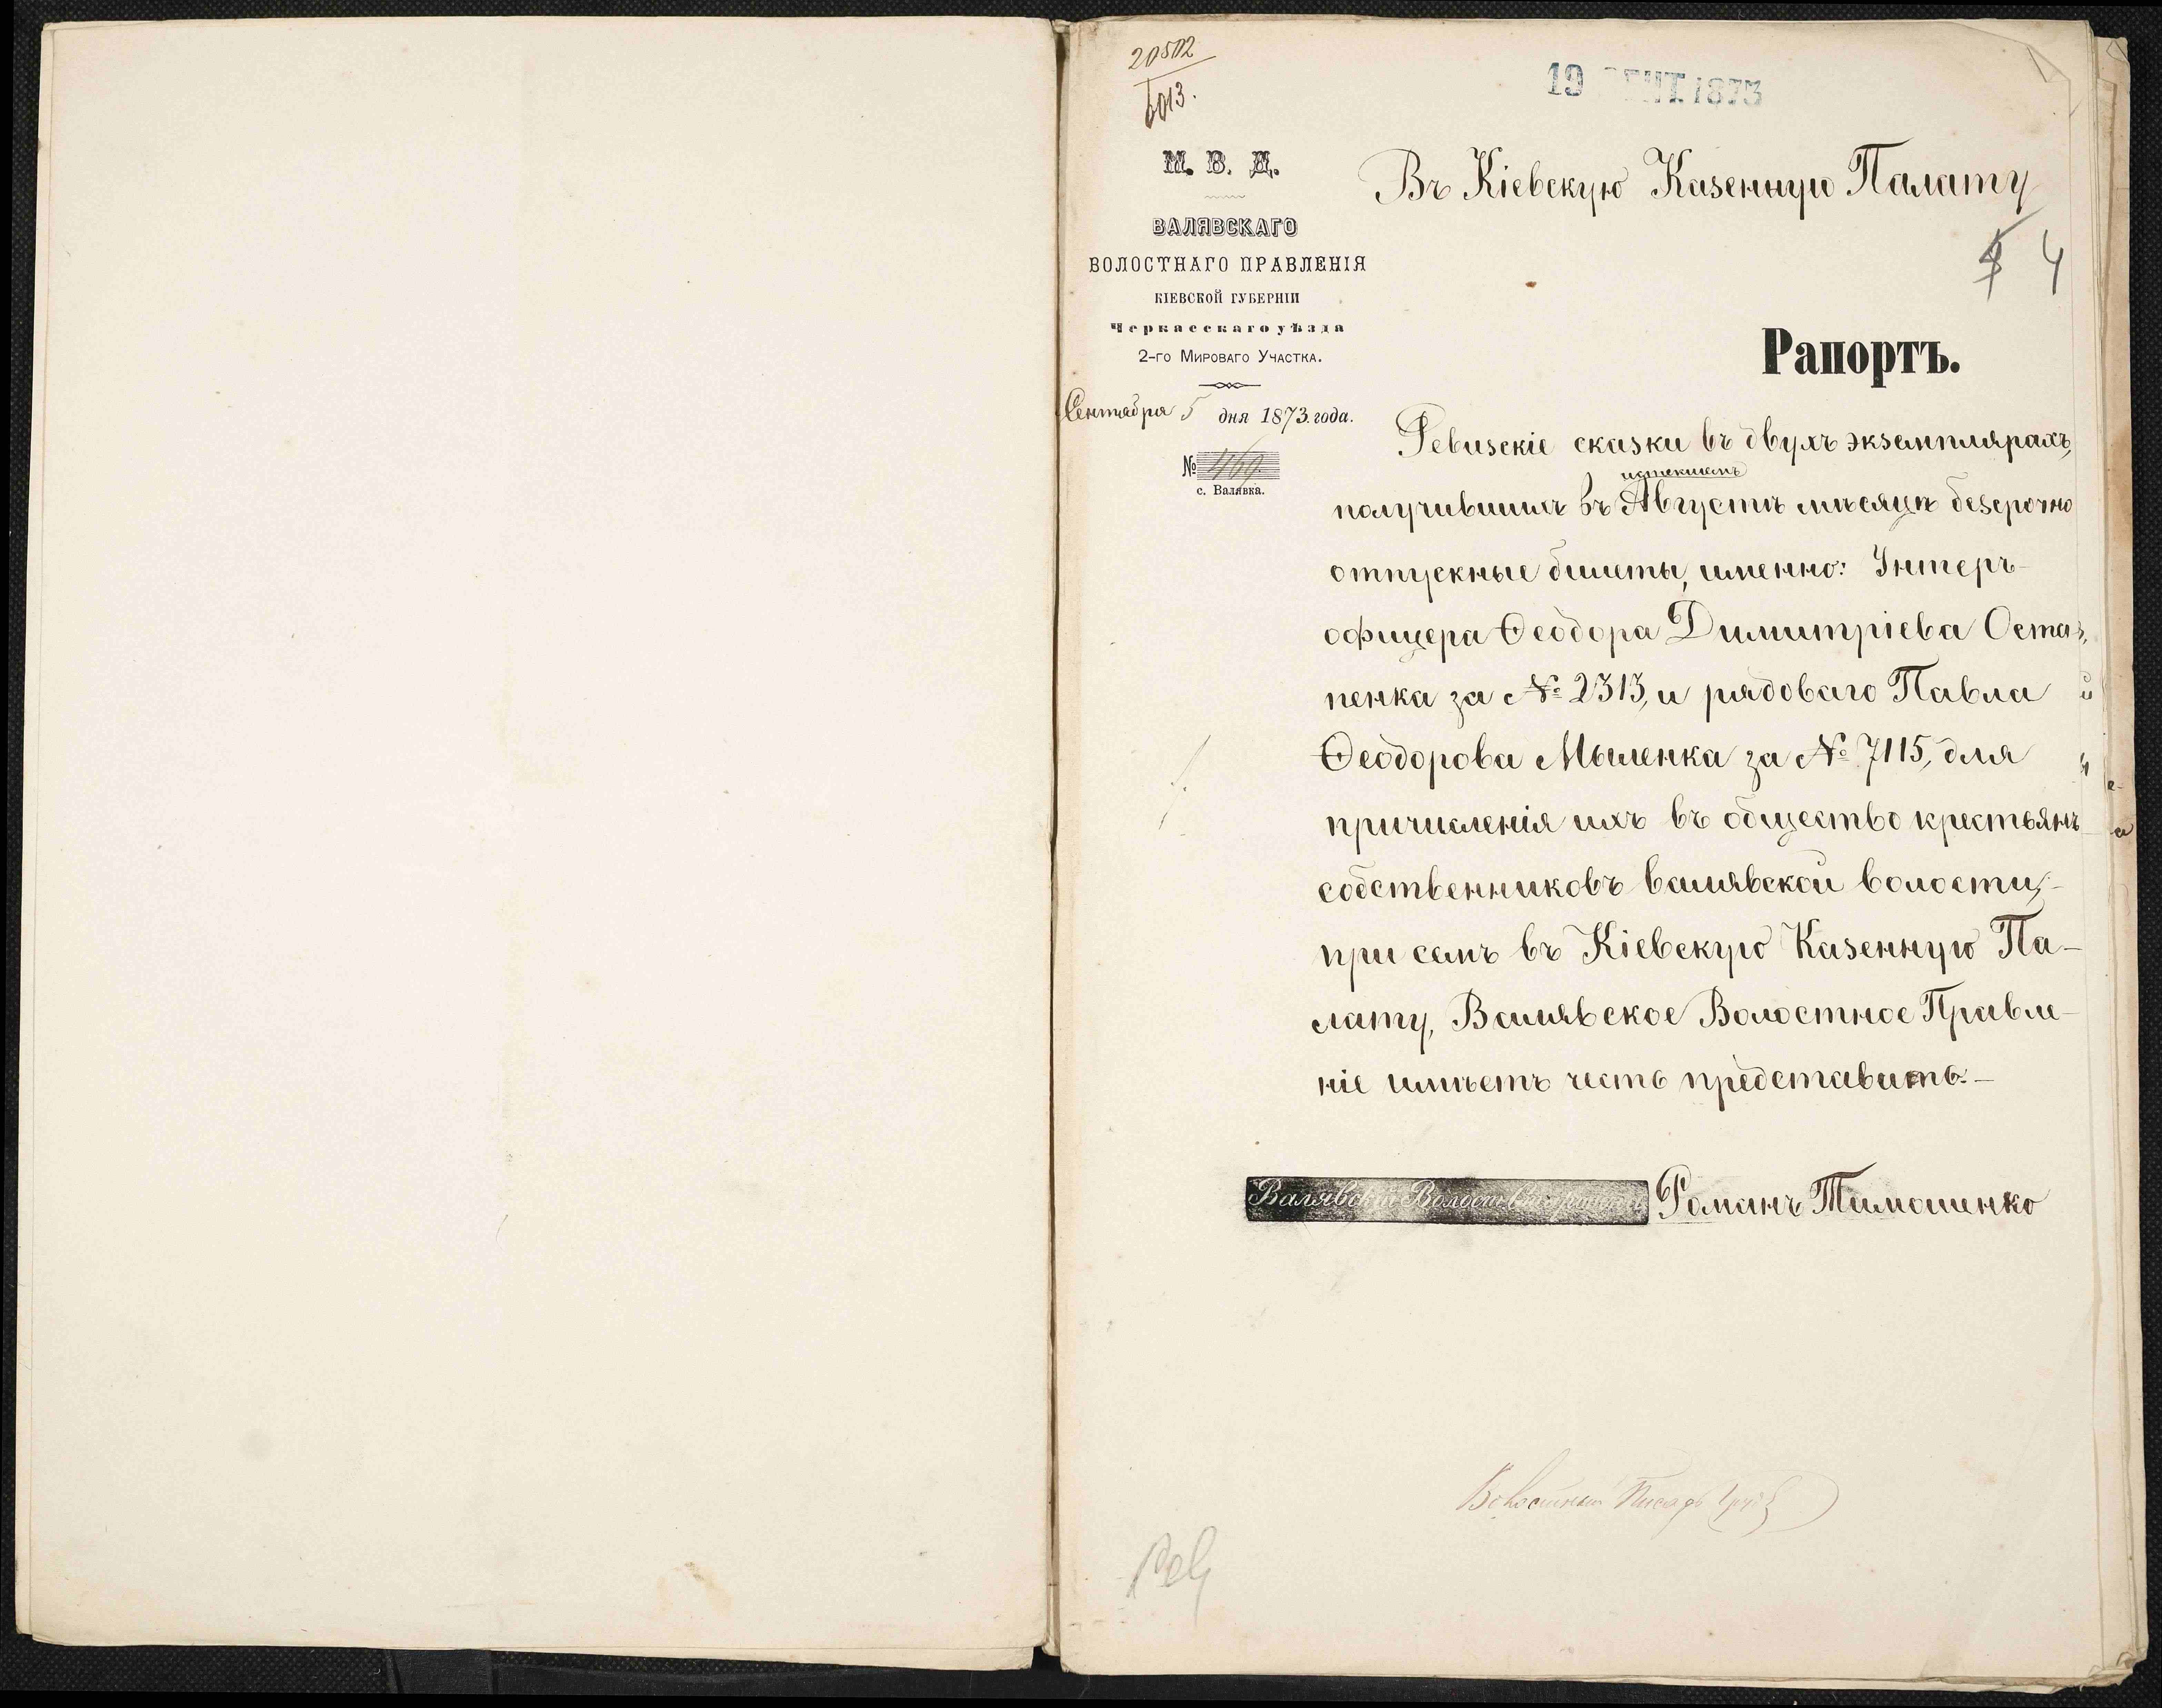 20502
6013.
19 СЕНТ. 1873
М. В. Д.
ВАЛЯВСКАГО
ВОЛОСТНАГО ПРАВЛЕНІЯ
КІЕВСКОЙ ГУБЕРНІИ
Черкасскаго уѣзда
2-го Мироваго Участка.
Сентября 5 дня 1873. года.
№ 469.
с. Валявка.
Въ Кіевскую Казенную Палату
4
Рапортъ.
Ревизскіе сказки въ двухъ экземплярахъ,
истекшемъ
получившихъ въ Августѣ мѣсяцѣ безсрочно
отпускные билеты, именно: Унтеръ-
офицера Ѳеодора Димитріева Оста-
пенка за № 2313, и рядоваго Павла
Ѳеодорова Мыленка за № 7115, для
причисленія ихъ въ общество крестьянъ
собственниковъ валявской волости,-
при семъ въ Кіевскую Казенную Па-
лату, Валявское Волостное Правле-
ніе имѣетъ честь представить.-
Валявскій Волост. Старшина Романъ Тимошенко
Волостный Писарь